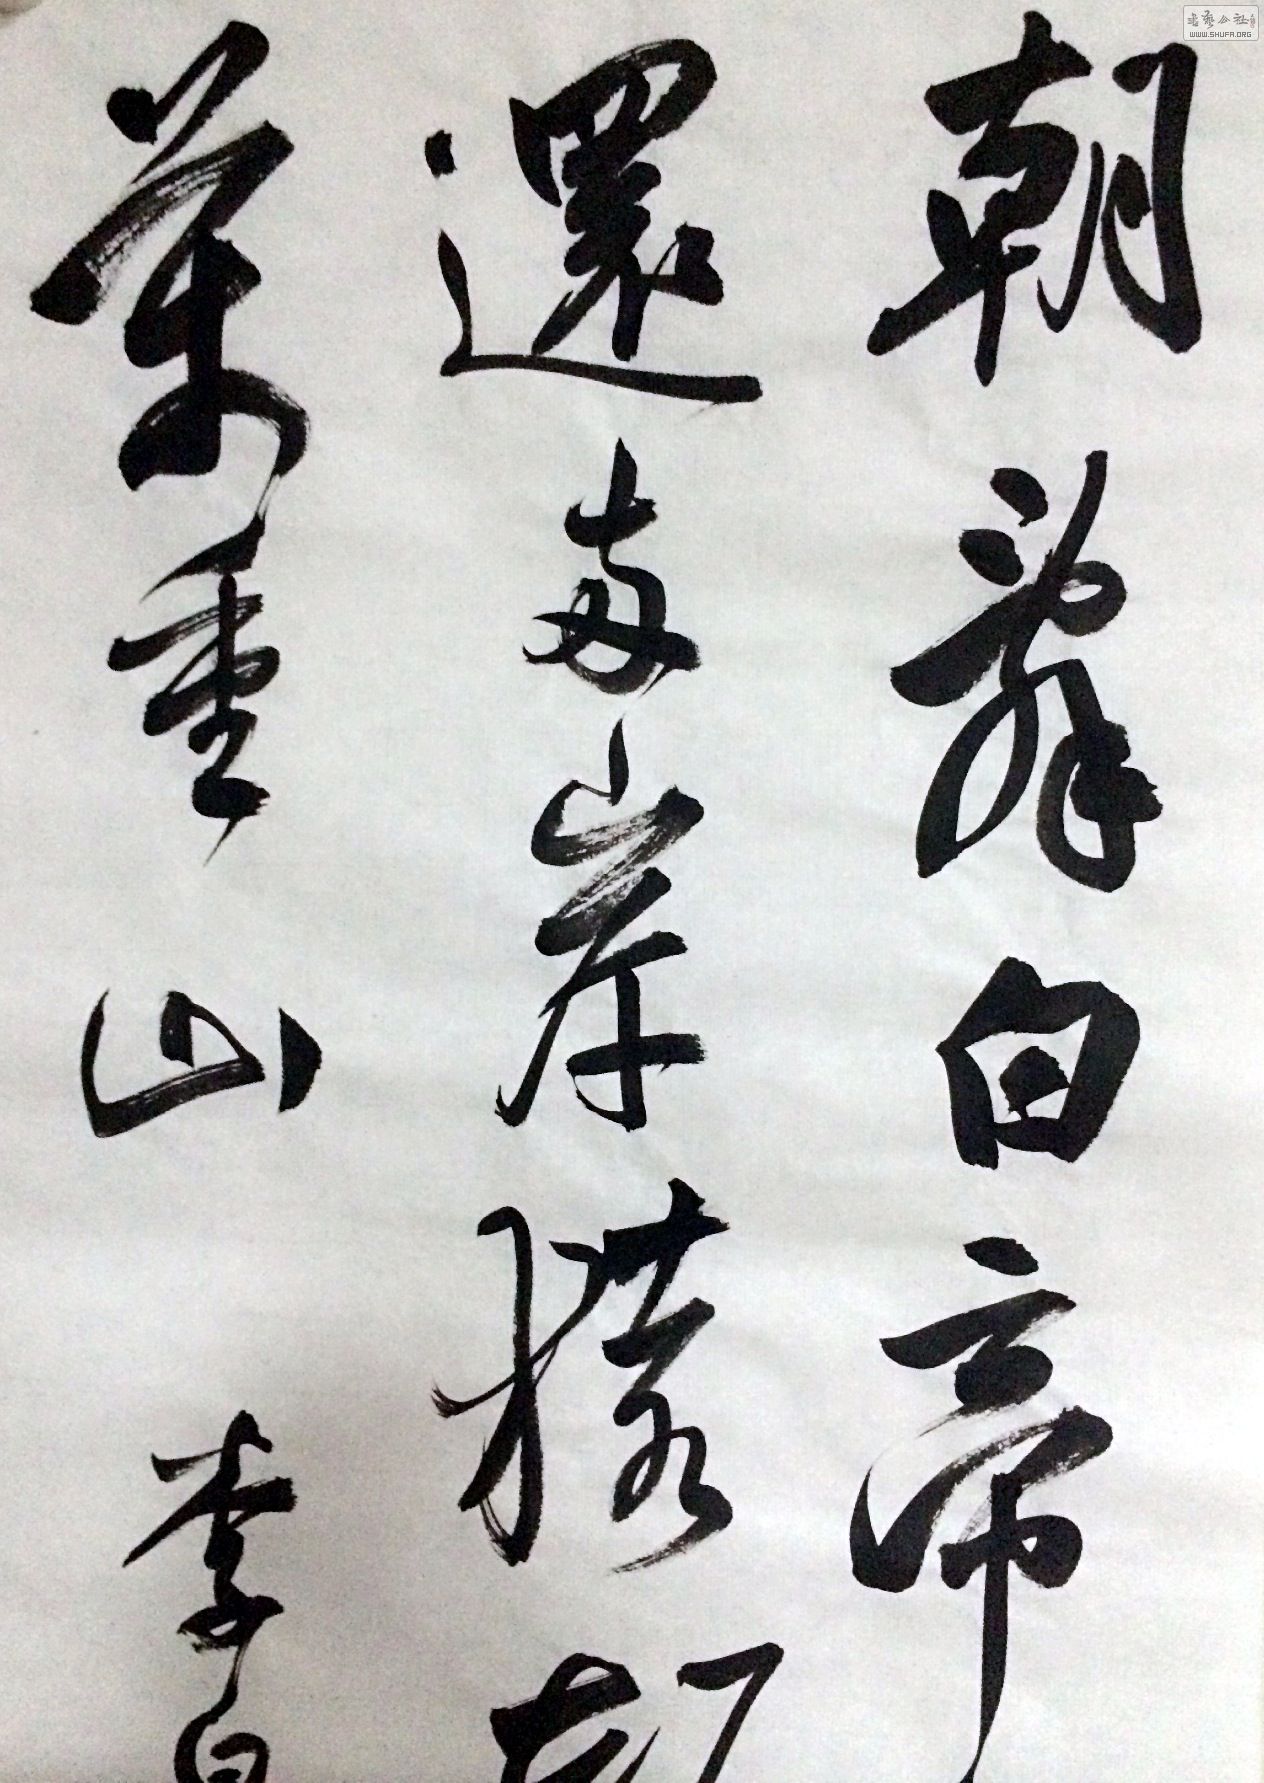 朝辭白帝
還兩岸猿却
萬重山
李白
書藝公社
WWW.SHUFA.ORG